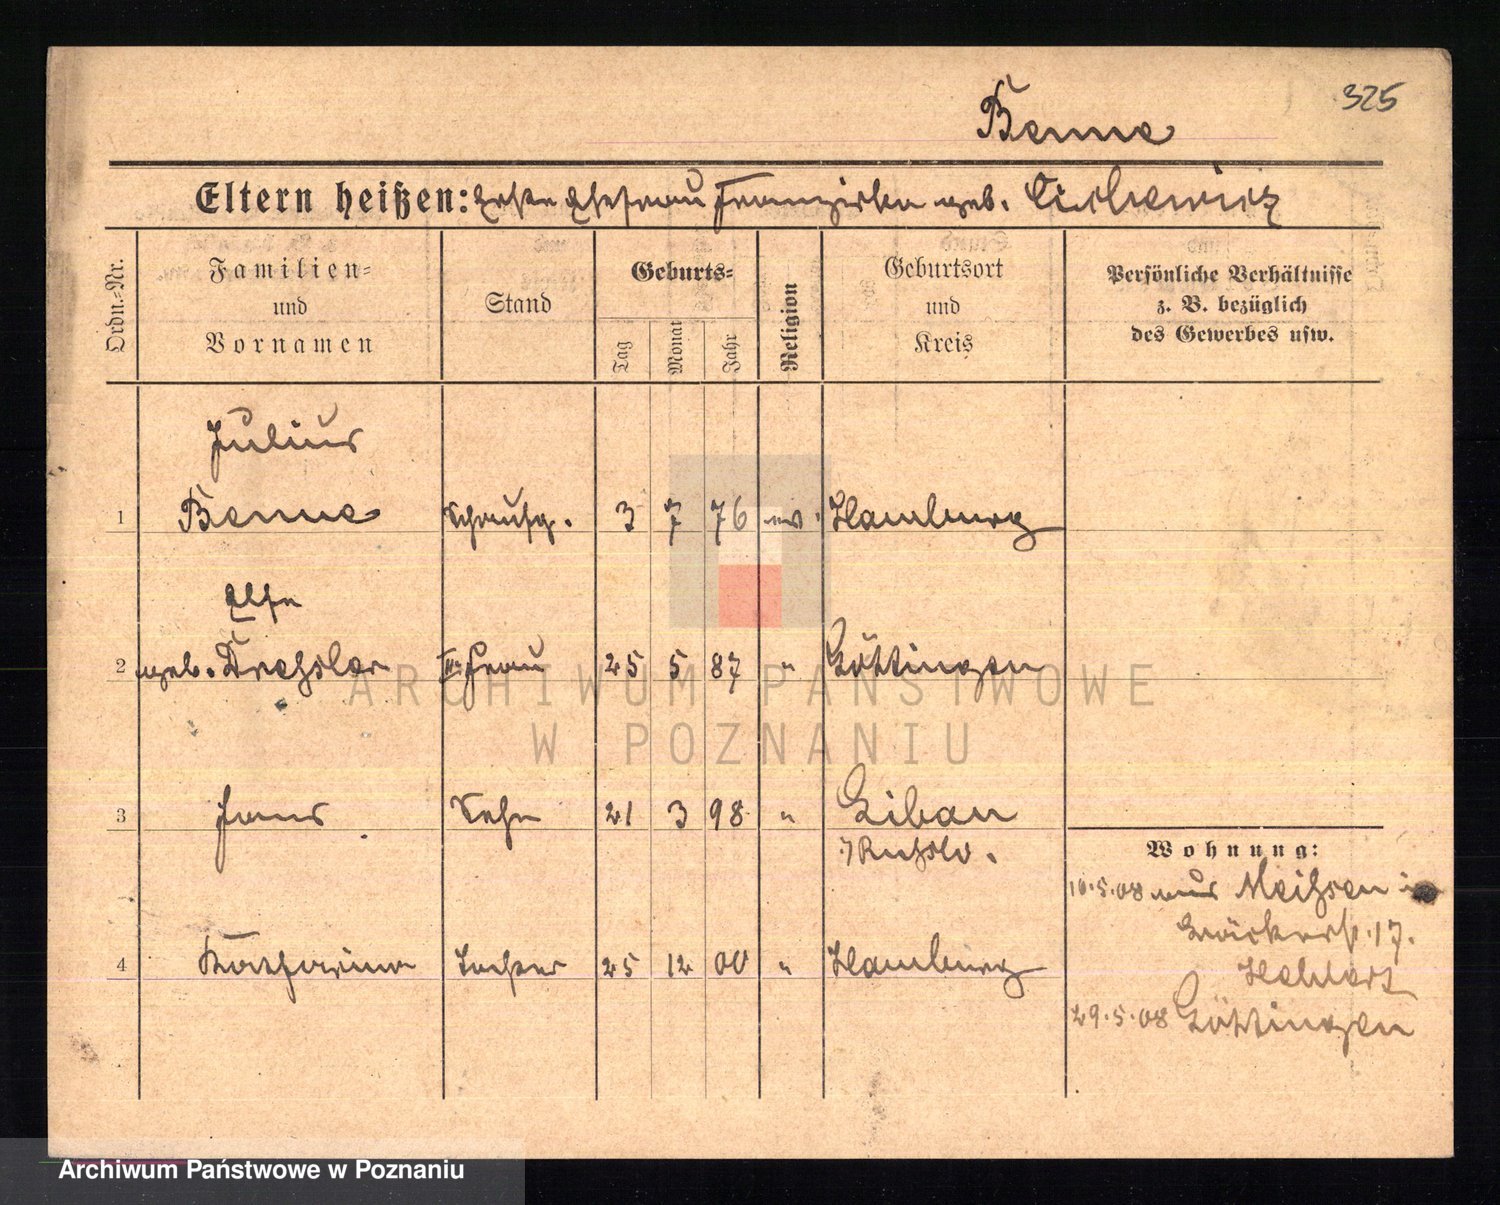 325
Benne
Eltern heißen: Erste Ehefrau Franziska geb.
Ordn.-Nr.
Familien-
und
Vornamen
Stand
Geburts-
Tag
Monat
Jahr
Religion
Geburtsort
und
Kreis
Persönliche Verhältnisse
z. B. bezüglich
des Gewerbes usw.
Julius
1 Benne Schausp. 3 7 76 ev. Hamburg
Else
2 geb. Drechsler II. Frau 25 5 87 " Göttingen
3 Hans Sohn 21 3 98 " Libau
i/Russld.
4 Katharina Tochter 25 12 00 " Hamburg
Wohnung:
10.5.08 aus Meißen
17.
29.5.08 Göttingen
ARCHIWUM PAŃSTWOWE
W POZNANIU
Archiwum Państwowe w Poznaniu